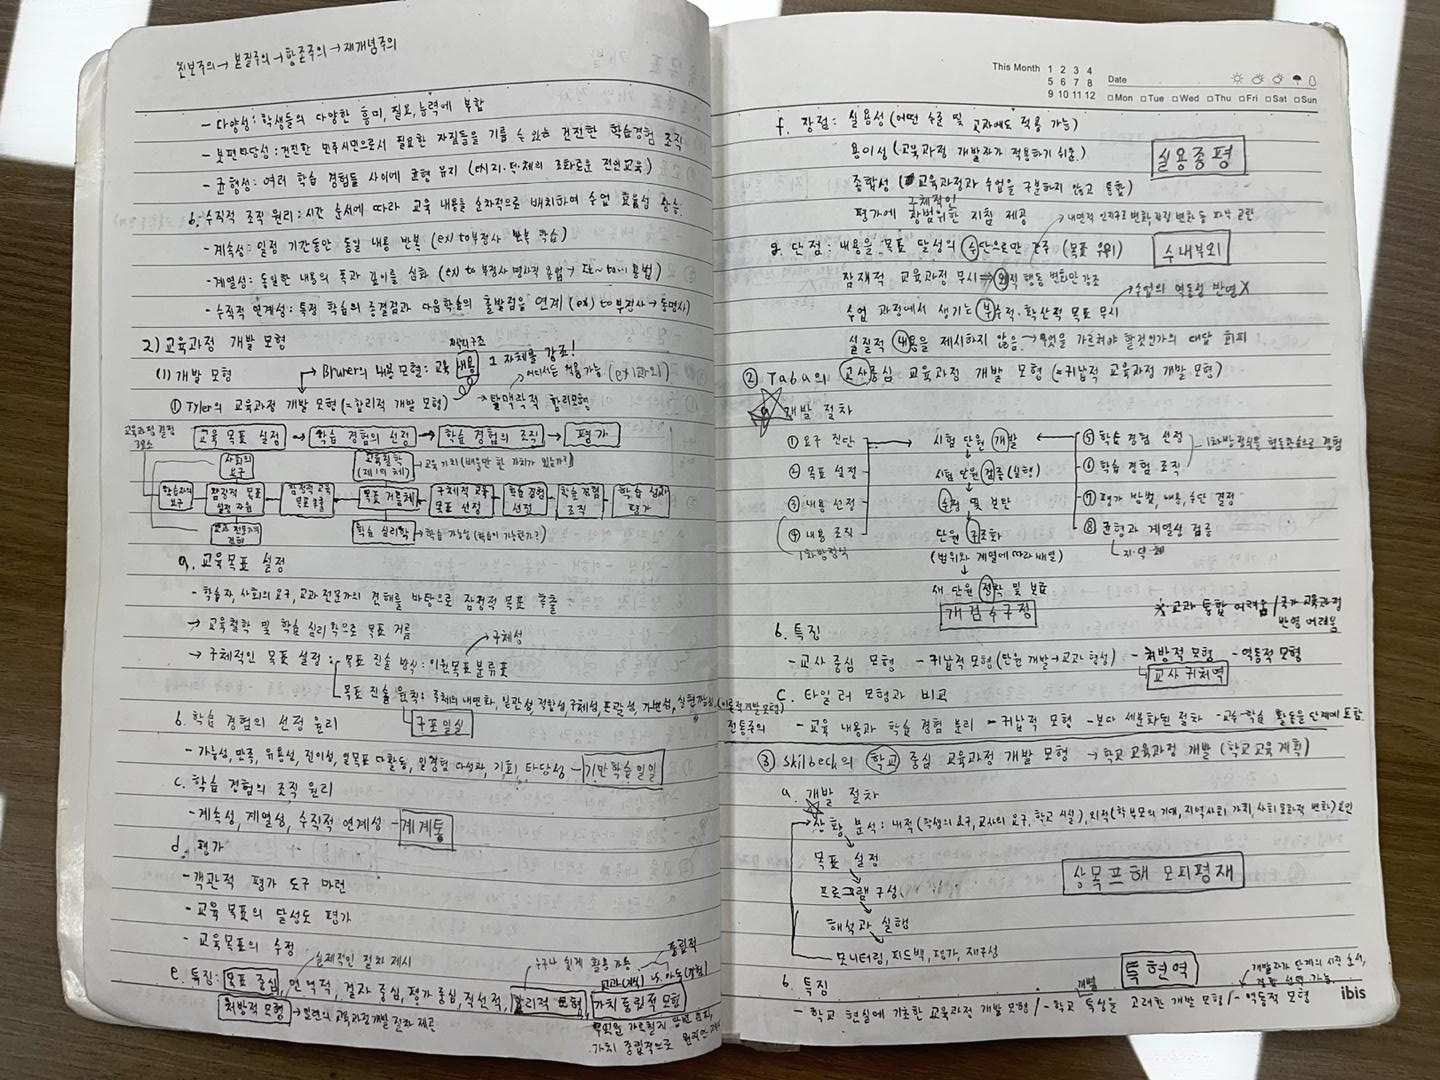 진보주의 → 본질주의 → 항존주의 → 재개념주의
- 다양성: 학생들의 다양한 흥미, 필요, 능력에 부합
- 보편타당성: 건전한 민주시민으로서 필요한 자질들을 기를 수 있는 건전한 학습경험 조직
- 균형성: 여러 학습 경험들 사이에 균형 유지 (ex) 지·덕·체의 조화로운 전인교육)
b. 수직적 조직 원리: 시간 순서에 따라 교육 내용을 순차적으로 배치하여 수업 효율성 상승
- 계속성: 일정 기간동안 동일 내용 반복 (ex) to부정사 반복 학습)
- 계열성: 동일한 내용의 폭과 깊이를 심화 (ex) to부정사 명사적 용법 → 용법)
- 수직적 연계성: 특정 학습의 종결점과 다음학습의 출발점을 연계 (ex) to부정사 → 동명사)
2) 교육과정 개발 모형
(1) 개발 모형
Bruner의 내용 모형: 교육 내용 그 자체를 강조!
① Tyler의 교육과정 개발 모형 (= 합리적 개발 모형) → 탈맥락적 합리모형
어디서든 적용 가능 (ex)
교육과정 결정 3요소
교육 목표 설정 → 학습 경험의 선정 → 학습 경험의 조직 → 평가
사회의 요구
교육철학 (제1의 체) 교육 가치 (배울만 한 가치가 있는가?)
학습자의 요구
잠정적 목표 설정 자원
잠정적 교육 목표 추출
목표 거름체
구체적 교육 목표 선정
학습 경험 선정
학습 경험 조직
학습 성과 평가
교과 전문가의 견해
학습 심리학 → 학습 가능성 (학습이 가능한가?)
a. 교육목표 설정
- 학습자, 사회의 요구, 교과 전문가의 견해를 바탕으로 잠정적 목표 추출
→ 교육철학 및 학습 심리학으로 목표 거름
→ 구체적인 목표 설정: 목표 진술 방식: 이원목표분류표 → 구체성
목표 진술 원칙: 주체의 내면화, 일관성, 적합성, 구체성, 포괄성, 가변성, 실현가능성
구포일실
b. 학습 경험의 선정 원리
- 가능성, 만족, 유용성, 전이성, 일목표 다활동, 일경험 다성과, 기회, 타당성 - 기만학습일일
c. 학습 경험의 조직 원리
- 계속성, 계열성, 수직적 연계성 - 계계통
d. 평가
- 객관적 평가 도구 마련
- 교육 목표의 달성도 평가
- 교육목표의 수정
e. 특징: 목표 중심, 연역적, 결과 중심, 평가 중심, 직선적, 합리적 모형, 가치중립적 모형
실제적인 절차 제시
누구나 쉽게 활용 가능
중립적
처방적 모형 → 일련의 교육과정개발 절차 제공
가치 중립적으로
This Month 1 2 3 4
5 6 7 8
9 10 11 12
Date
Mon Tue Wed Thu Fri Sat Sun
f. 장점: 실용성 (어떤 수준 및 교과에도 적용 가능)
용이성 (교육과정 개발자가 적용하기 쉬움)
실용종평
종합성 (교육과정과 수업을 구분하지 않고 통합)
구체적인
평가에 광범위한 지침 제공
g. 단점: 내용을 목표 달성의 수단으로만 간주 (목표 우위)
수내부외
잠재적 교육과정 무시 ⇒ 외적 행동 변화만 강조
수업의 역동성 반영X
수업 과정에서 생기는 부수적·확산적 목표 무시
실질적 내용을 제시하지 않음 → 무엇을 가르쳐야 할것인가의 대답 회피
② Taba의 교사중심 교육과정 개발 모형 (= 귀납적 교육과정 개발 모형)
a. 개발 절차
① 요구 진단
② 목표 설정
③ 내용 선정
④ 내용 조직
시험 단원 개발
시험 단원 검증 (실행)
수정 및 보완
단원 구조화
(범위와 계열에 따라 배열)
새 단원 정착 및 보급
개검수구정
⑤ 학습 경험 선정
⑥ 학습 경험 조직
⑦ 평가 방법, 내용, 수단 결정
⑧ 균형과 계열성 검증
지·덕·체
※ 교과 통합 어려움 / 국가 교육과정 반영 어려움
b. 특징
- 교사 중심 모형 - 귀납적 모형 (단원 개발 → 교과 형성) - 처방적 모형 - 역동적 모형
교사귀처역
c. 타일러 모형과 비교
(이론적개발모형)
전통주의 - 교육 내용과 학습 경험 분리 - 귀납적 모형 - 보다 세분화된 절차 - 교수-학습 활동을 단계에 포함
③ Skilbeck의 학교 중심 교육과정 개발 모형 → 학교 교육과정 개발 (학교 교육 계획)
a. 개발 절차
상황 분석: 내적 (학생의 요구, 교사의 요구, 학교 시설), 외적 (학부모의 기대, 지역사회 가치, 사회 문화적 변화) 요인
목표 설정
프로그램 구성
해석과 실행
모니터링, 피드백, 평가, 재구성
상목프해 모피평재
b. 특징
특현역
- 학교 현실에 기초한 교육과정 개발 모형 / - 학교 특성을 고려한 개발 모형 / - 역동적 모형
개별
ibis